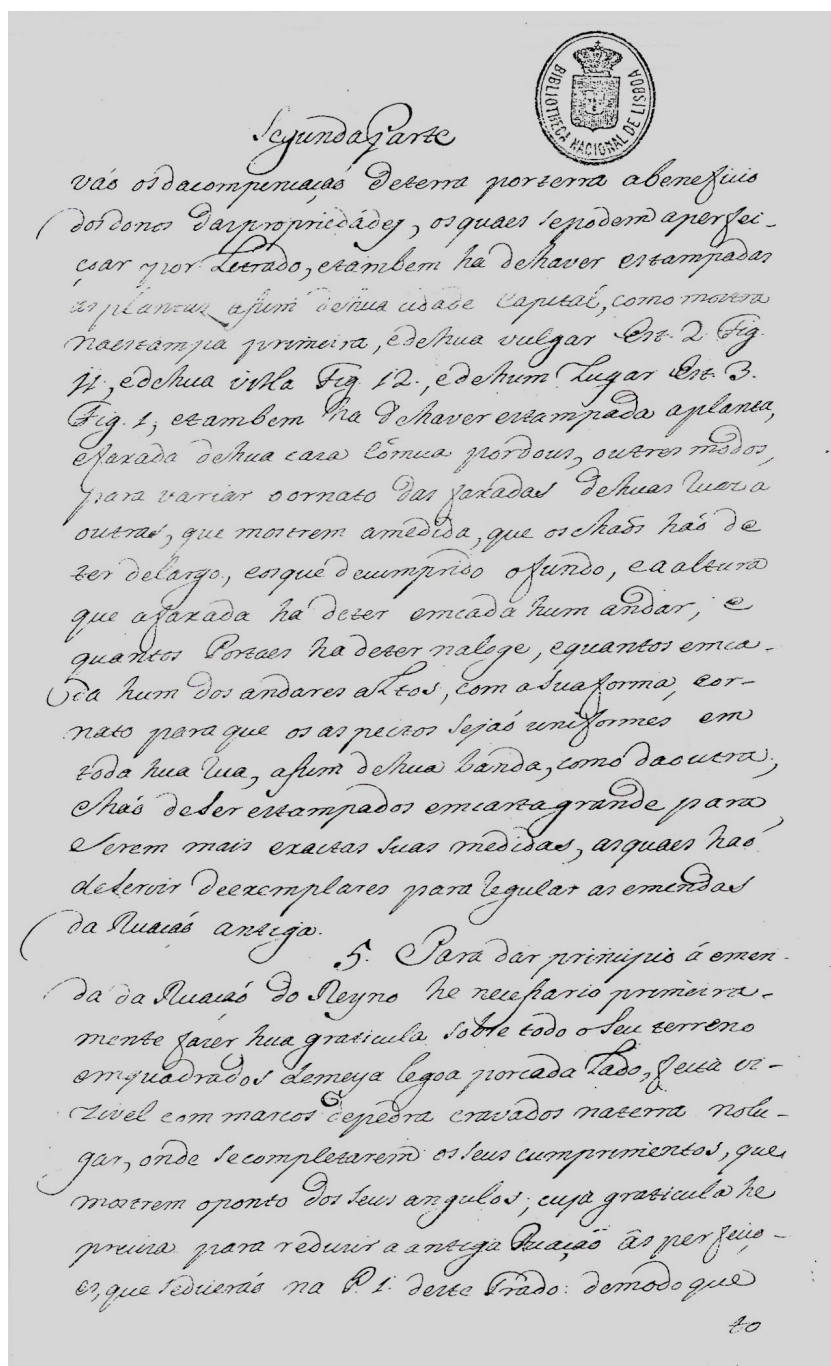 BIBLIOTHECA NACIONAL DE LISBOA
Segunda Parte
vaó os da compensaçaó de terra por terra a beneficio
dos donos das propriedades, os quaes se podem aperfei-
çoar por Letrado, e tambem ha de haver estampadas
as plantas assim de hua cidade Capital, como mostra
na estampa primeira, e de hua vulgar Est. 2. Fig.
11., e de hua villa Fig. 12., e de hum Lugar Est. 3.
Fig. 1, e tambem ha de haver estampada a planta,
e faxada de hua caza cómua por dous, ou tres modos,
para variar o ornato das faxadas de huas ruas a
outras, que mostrem a medida, que os chaós haó de
ter de largo, e os que de cumprido o fundo, e a altura
que a faxada ha de ter em cada hum andar; e
quantos Portaes ha de ter na loge, e quantos em ca-
da hum dos andares altos, com a sua forma, e or-
nato para que os aspectos sejaó uniformes em
toda hua rua, assim de hua banda, como da outra;
e haó de ser estampados em carta grande para
serem mais exactas suas medidas, as quaes haó
de servir de exemplares para regular as emendas
da Ruaçaó antiga.
5. Para dar principio á emen-
da da Ruaçaó do Reyno he necessario primeira-
mente fazer hua graticula sobre todo o seu terreno
em quadrados de meya legoa por cada Lado, feita vi-
zivel com marcos de pedra cravados na terra no lu-
gar, onde se completarem os seus cumprimentos, que
mostrem o ponto dos seus angulos; cuja graticula he
preciza para reduzir a antiga Ruaçaó ás perfeiço-
es, que se diceraó na P. 1. deste Trado: de modo que
to